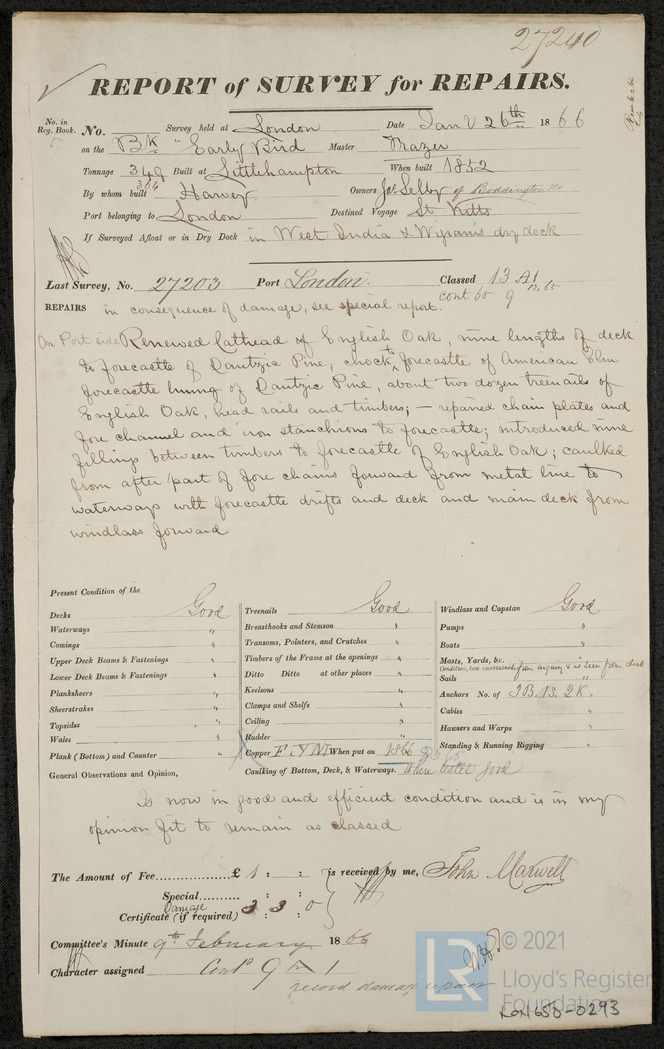 27240
REPORT of SURVEY for REPAIRS.
No. in Reg. Book. No. Survey held at London Date Jany 26th 1866
on the Bk "Early Bird Master Frazer
Tonnage 349 Built at Littlehampton When built 1852
364
By whom built Harvey Owners Jas Selby of Boddington &c
Port belonging to London Destined Voyage St Kitts
If Surveyed Afloat or in Dry Dock in West India & Wigram's dry dock
Last Survey, No. 27203 Port London. Classed 13 A1
cont 65 9
REPAIRS in consequence of damage, see special report.
On Port side Renewed Cathead of English Oak, nine lengths of deck
to forecastle of Dantzic Pine, chock to forecastle of American Elm
forecastle lining of Dantzic Pine, about two dozen treenails of
English Oak, head rails and timbers; – repaired chain plates and
fore channel and iron stanchions to forecastle; introduced nine
fillings between timbers to forecastle of English Oak; caulked
from after part of fore chains forward from metal line to
waterways with forecastle drifts and deck and main deck from
windlass forward
Present Condition of the
Decks Good
Waterways "
Comings "
Upper Deck Beams & Fastenings "
Lower Deck Beams & Fastenings "
Planksheers "
Sheerstrakes "
Topsides "
Wales "
Plank (Bottom) and Counter "
Treenails Good
Breasthooks and Stemson "
Transoms, Pointers, and Crutches "
Timbers of the Frame at the openings "
Ditto Ditto at other places "
Keelsons "
Clamps and Shelfs "
Ceiling "
Rudder "
Copper F. Y M When put on 1866
Caulking of Bottom, Deck, & Waterways. when tested good
Windlass and Capstan Good
Pumps "
Boats "
Masts, Yards, &c. Condition, how ascertained, from enquiry & as seen from deck
Sails "
Anchors No. of 3B. 1S. 2K.
Cables "
Hawsers and Warps "
Standing & Running Rigging "
General Observations and Opinion,
Is now in good and efficient condition and is in my
opinion fit to remain as classed
The Amount of Fee £ 1 : : is received by me, John Maxwell
Special : :
Damage
Certificate (if required) 3 : 3 : 0
Committee's Minute 9th February 1866
Character assigned Contd 9 A 1
record damage repairs
© 2021
LR
Lloyd's Register
Foundation
LON650-0293